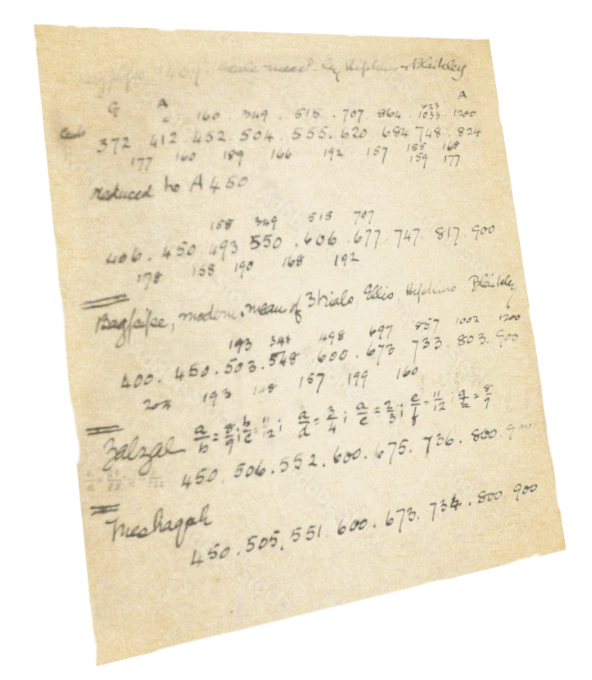 1409. Scale meas. by Hipkins & Blaikley
G A A
623
160 . 349 . 515 . 707 . 864 1033 . 1200
Cents 372 . 412 . 452 . 504 . 555 . 620 . 684 748 . 824
177 160 189 166 192 157 155 168
159 177
reduced to A 450
158 349 515 707
406 . 450 493 550 . 606 . 677 . 747 . 817 . 900
178 158 190 168 192
Bagpipe, modern, mean of 3 trials Ellis, Hipkins Blaikley
193 348 498 697 857 1002 1200
400 . 450 . 503 . 548 . 600 . 673 733 . 803 . 900
203 193 157 199 160
Zalzal a/b = 8/9; b/c = 11/12; a/d = 3/4; a/e = 2/3; e/f = 11/12; g/a = 8/9
450 . 506 . 552 . 600 . 675 . 736 . 800 . 900
Meshaqah
450 . 505 . 551 . 600 . 673 . 734 . 800 . 900